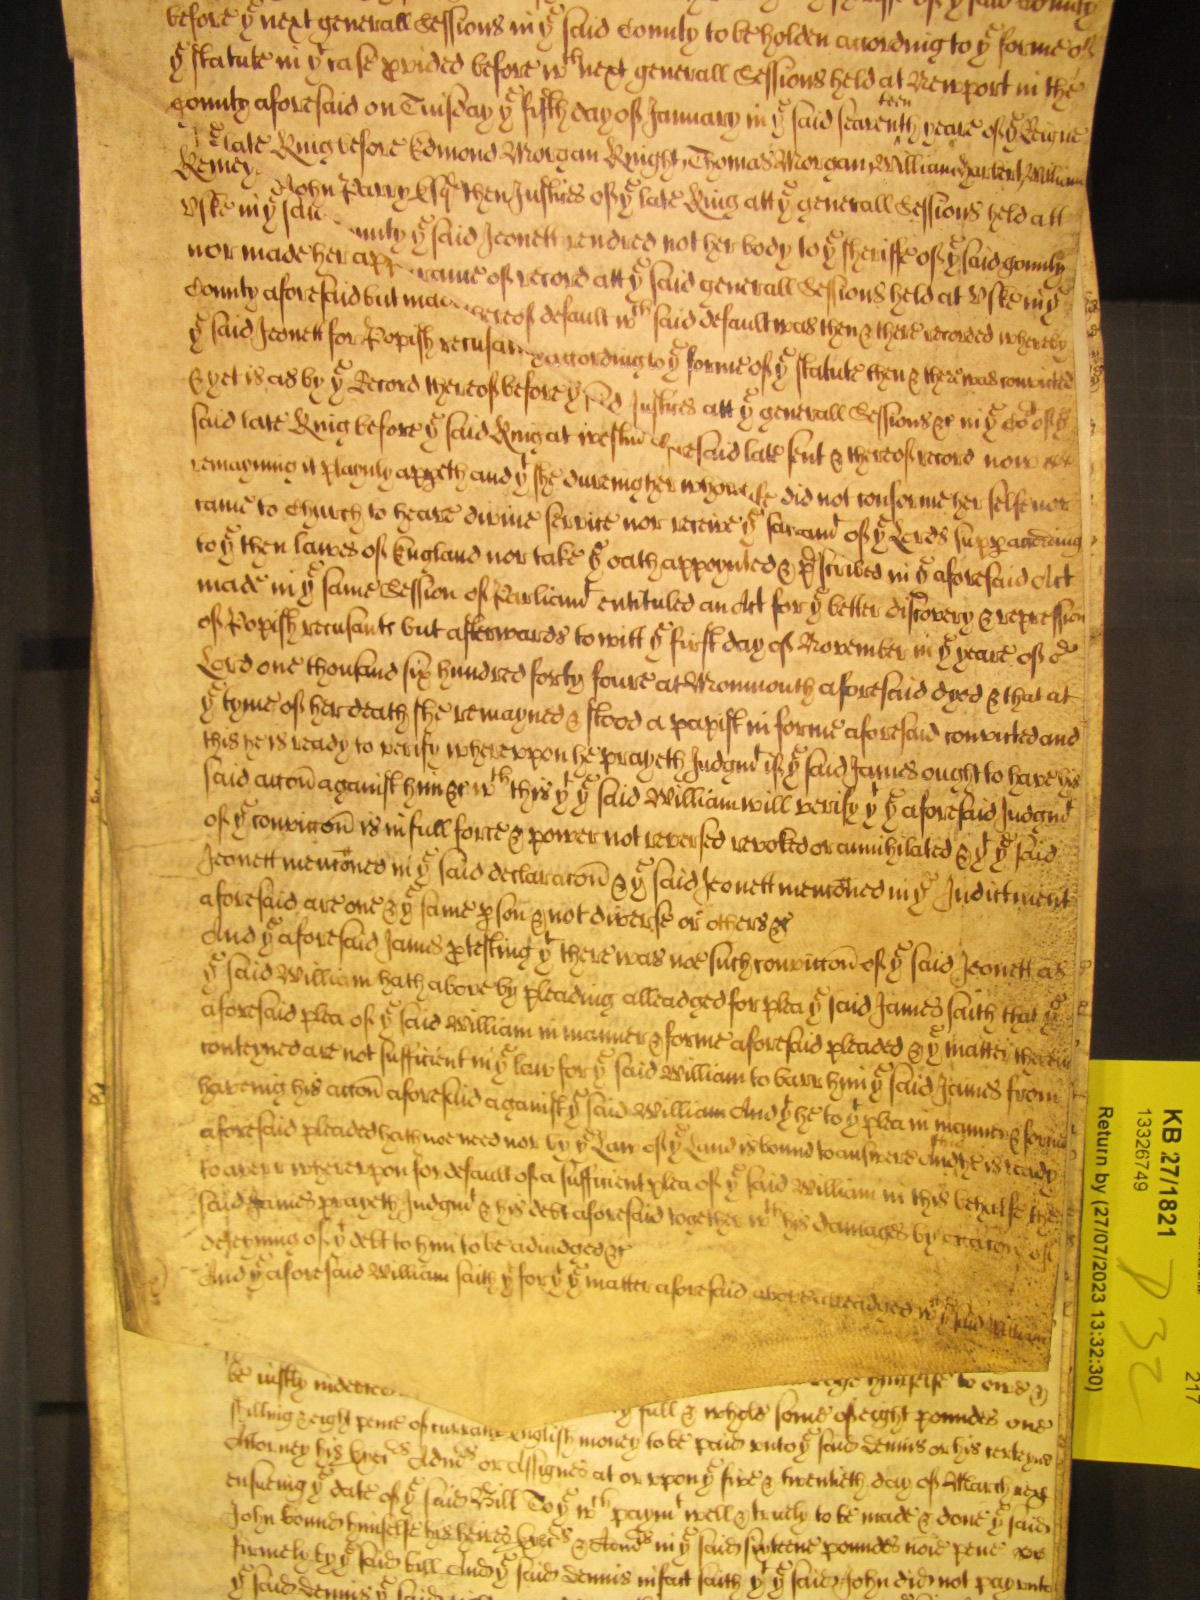 before ye next generall Sessions in ye said County to be holden according to ye forme of
ye statute in yt case pvided before wch next generall Sessions held at Newport in the
County aforesaid on Tuisday ye fifth day of January in ye said seaventeenth yeare of ye Reigne
ye late King before Edmond Morgan Knight Thomas Morgan William Harbert William
Kemey John Parry Esqrs then Justices of ye late King att ye generall Sessions held att
Vske in ye said County ye said Jeonett rendred not her body to ye sheriffe of ye said County
nor made her app rance of record att ye said generall Sessions held at Vske in ye
County aforesaid but mad thereof default wch said default was then & there recorded whereby
ye said Jeonett for Popish recusancy according to ye forme of ye statute then & there was convicted
& yet is as by ye Record thereof before ye sd Justices att ye generall Sessions &c in ye Co of ye
said late King before ye said King at Westm aforesaid late sent & thereof record now
remayning it playnly appeth and yt she dureing her whole life did not conforme her selfe nor
came to Church to heare divine service nor receive ye sacramt of ye Lords supp according
to ye then lawes of England nor take ye oath appoynted & pscribed in ye aforesaid Act
made in ye same Session of Parliamt entituled an Act for ye better discovery & repression
of Popish recusants but afterwards to witt ye first day of November in ye yeare of or
Lord one thousand six hundred forty foure at Monmouth aforesaid dyed & that at
ye tyme of her death she remayned & stood a papist in forme aforesaid convicted and
this he is ready to verify wherevpon he prayeth Judgmt if ye said James ought to have his
said accon against him &c wth this yt ye said William will verify yt ye aforesaid Judgmt
of ye conviccon is in full force & power not reversed revoked or annihilated & yt ye said
Jeonett menconed in ye said declaracon & ye said Jeonett menconed in ye Indictment
aforesaid are one & ye same pson & not diverse or others &c
And ye aforesaid James ptesting yt there was noe such conviccon of ye said Jeonett as
ye said William hath above by pleading alleadged for plea ye said James saith that ye
aforesaid plea of ye said William in manner & forme aforesaid pleaded & ye matter therein
conteyned are not sufficient in ye law for ye said William to barr him ye said James from
haveing his accon aforesaid against ye said William And yt he to yt plea in manner & forme
aforesaid pleaded hath noe need nor by ye Law of ye Land is bound to answere And this he is ready
to averr wherevpon for default of a sufficient plea of ye said William in this behalfe the
said James prayeth Judgmt & his debt aforesaid together wth his damages by occasion of
deteyning of yt debt to him to be adiudged &c
And ye aforesaid William saith yt for yt ye matter aforesaid above alleadged wch ye said William
be iustly indebted himselfe to owe &
shilling & eight pence of currant English money full & whole some of eight poundes one
to be paid vnto ye said Dennis or his certeyne
Attorney his Execrs Admrs or Assignes at or vpon ye five & twentieth day of March next
ensueing ye date of ye said Bill To ye wch paymt well & truely to be made & done ye said
John bound himselfe his heires Execrs & Admrs in ye said sixteene poundes noie pene
firmely by ye said bill And ye said Dennis in fact saith yt ye said John did not pay vnto
ye said Dennis ye said
KB 27/1821
13326749
Return by (27/07/2023 13:32:30)
217